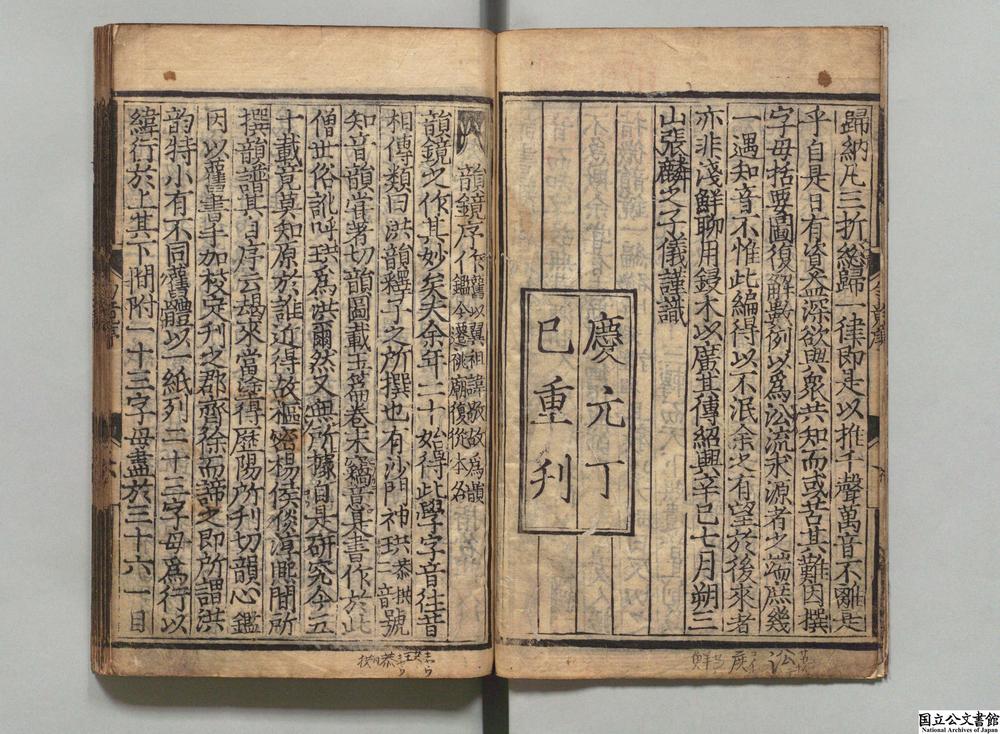 歸納凡三折總歸一律即是以推千聲萬音不離是
乎自是日有資益深欲與衆共知而或苦其難因撰
字母括要圖復解數例以爲沿流求源者之端庶幾
一遇知音不惟此編得以不泯余之有望於後來者
亦非淺鮮聊用鋟木以廣其傳紹興辛巳七月朔三
山張麟之子儀謹識
慶元丁
巳重刊
韻鏡序作
舊以翼祖諱敬故爲韻
鑑今遷祧廟復從本名
韻鏡之作其妙矣夫余年二十始得此學字音往昔
相傳類曰洪韻釋子之所撰也有沙門神珙恭拱二音號
知音韻嘗著切韻圖載玉篇卷末竊意是書作於此
僧世俗訛呼珙爲洪爾然又無所據自是研究今五
十載竟莫知原於誰近得故樞密楊侯倓淳熙間所
撰韻譜其自序云朅來當塗得歷陽所刊切韻心鑑
因以舊書手加校定刊之郡齋徐而諦之即所謂洪
韵特小有不同舊體以一紙列二十三字母爲行以
緯行於上其下間附一十三字母盡於三十六一目
國立公文書館
National Archives of Japan